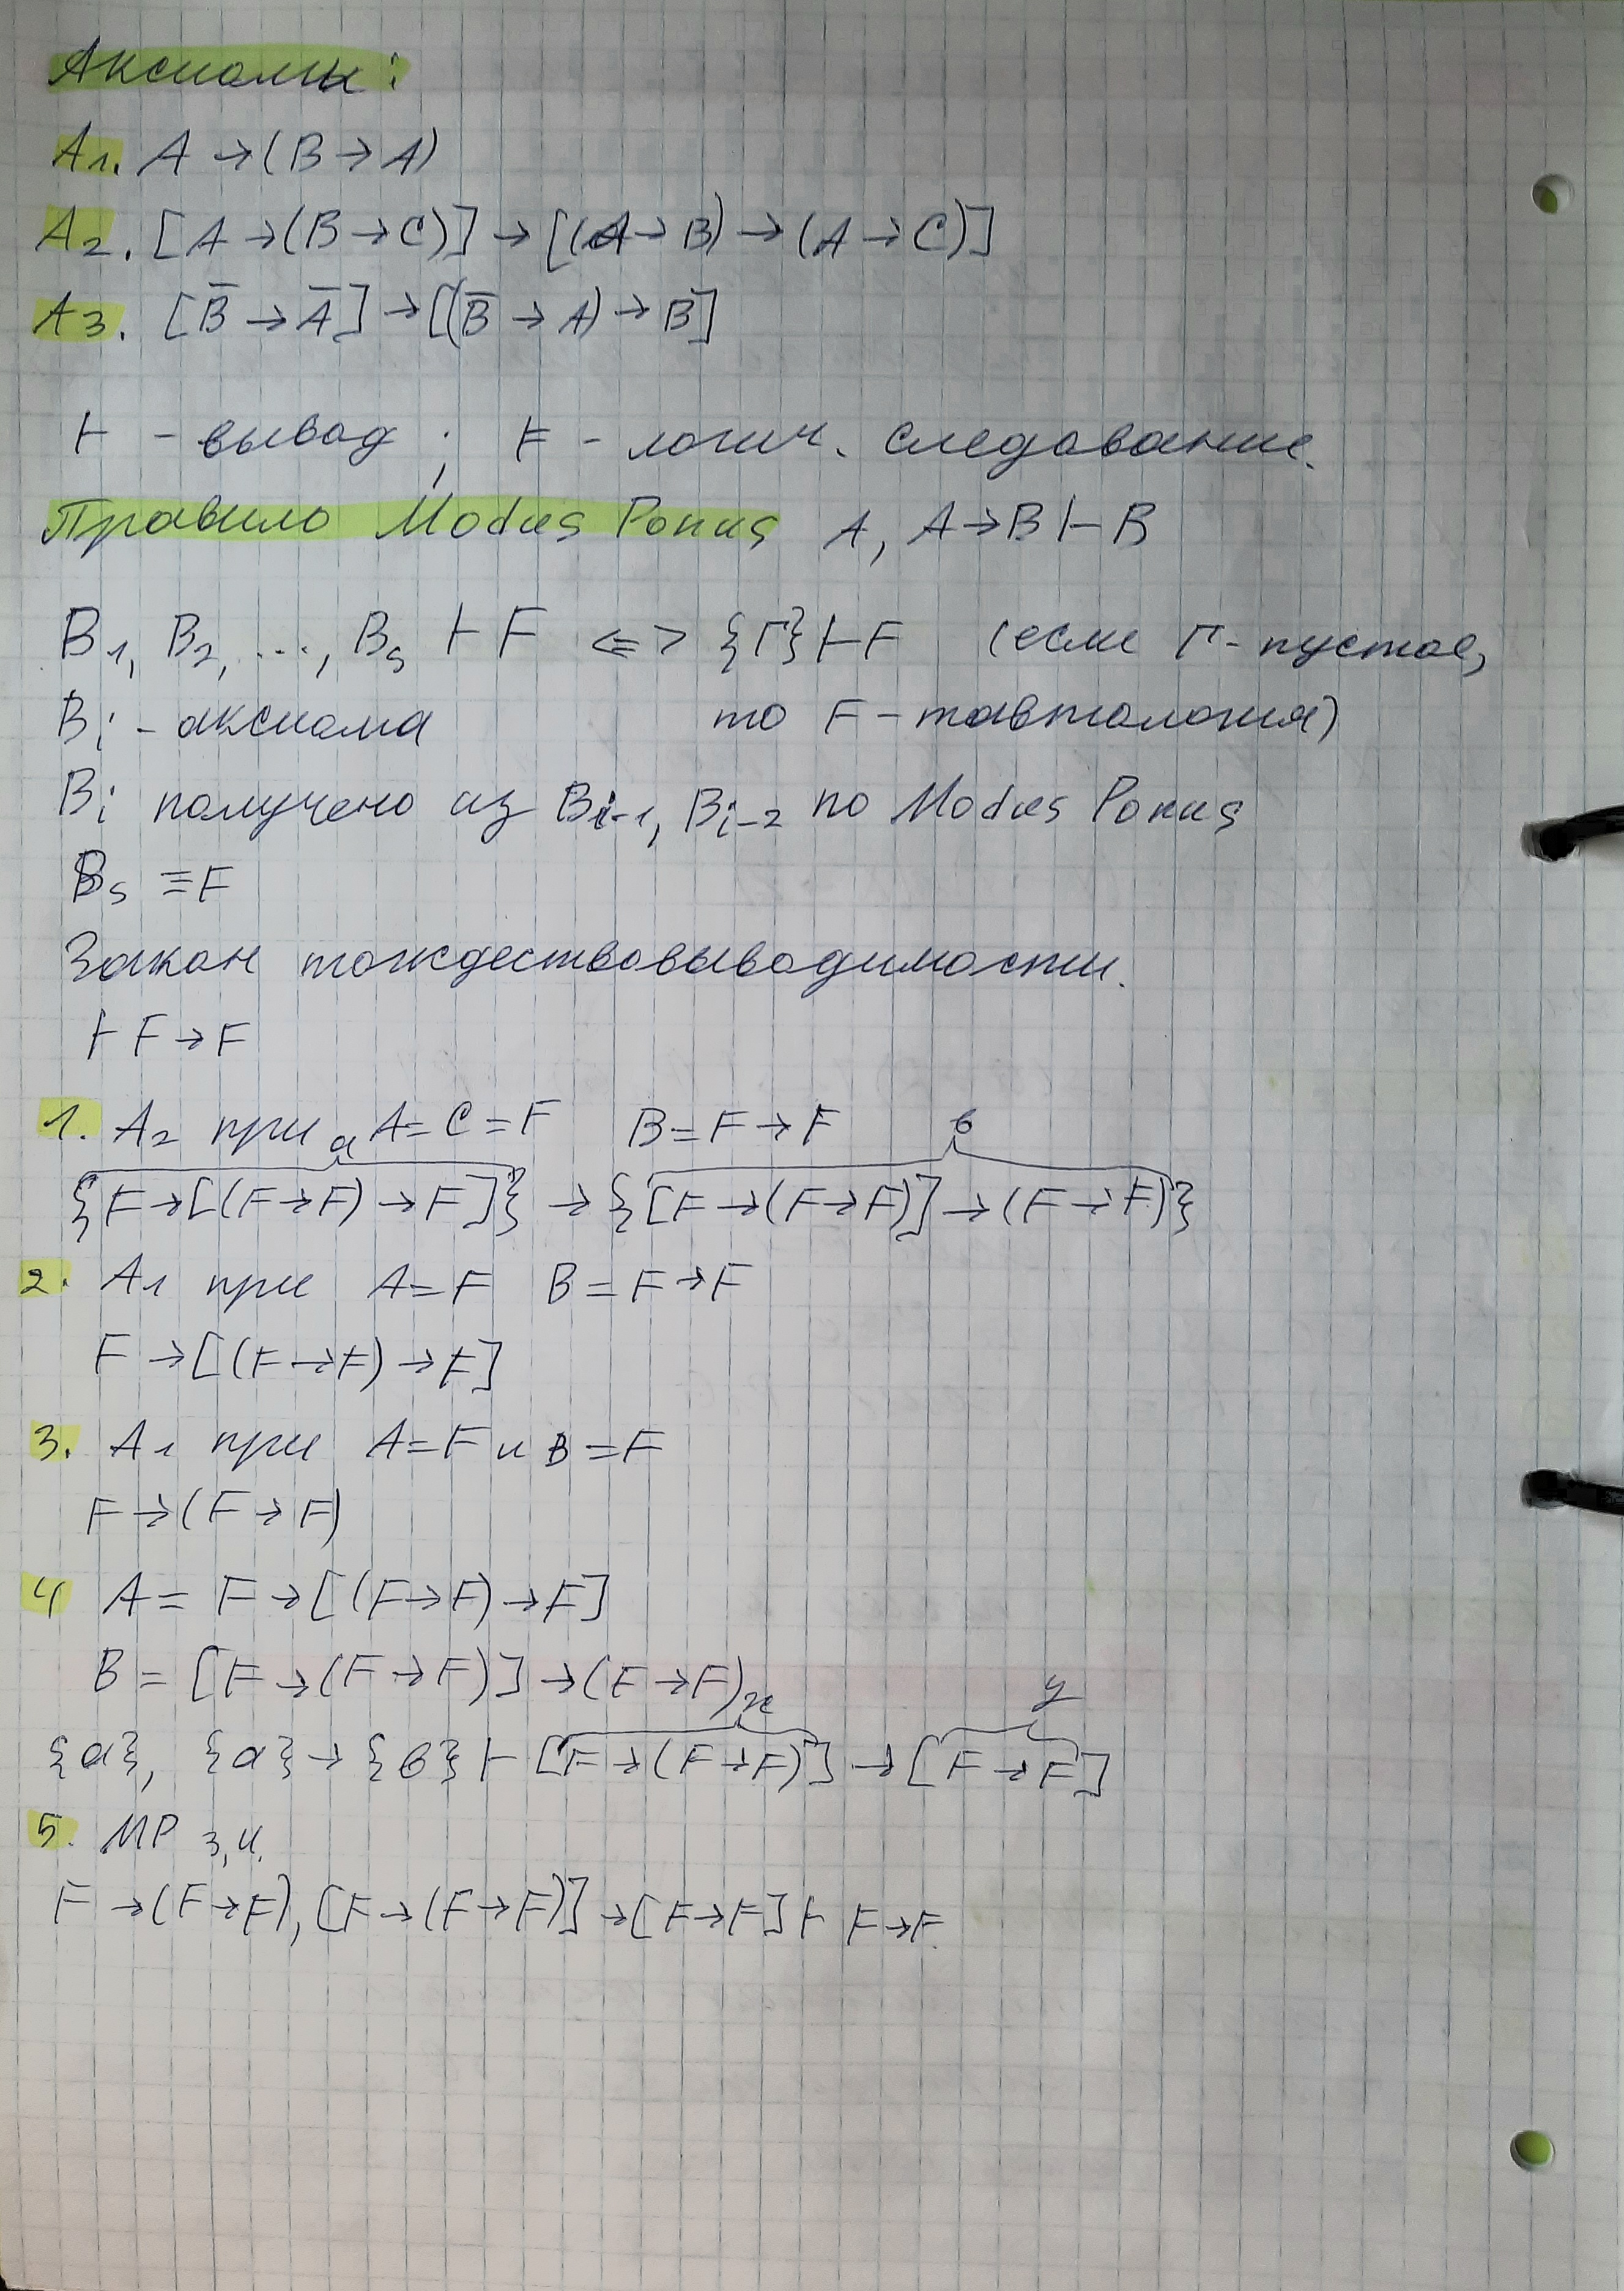 Аксиомы:
A1. A → (B → A)
A2. [A → (B → C)] → [(A → B) → (A → C)]
A3. [B̅ → A̅] → [(B̅ → A) → B]
⊢ - вывод ; ⊨ - логич. следование.
Правило Modus Ponus A, A → B ⊢ B
B1, B2, ..., Bs ⊢ F <=> {Γ} ⊢ F (если Γ - пустое,
Bi - аксиома то F - тавтология)
Bi получено из Bi-1, Bi-2 по Modus Ponus
Bs ≡ F
Закон тождествовыводимости.
⊢ F → F
1. A2 при A = C = F B = F → F
а в
{F → [(F → F) → F]} → {[F → (F → F)] → (F → F)}
2. A1 при A = F B = F → F
F → [(F → F) → F]
3. A1 при A = F и B = F
F → (F → F)
4 A = F → [(F → F) → F]
B = [F → (F → F)] → (F → F)
x y
{а}, {а} → {в} ⊢ [F → (F → F)] → [F → F]
5. MP 3,4.
F → (F → F), [F → (F → F)] → [F → F] ⊢ F → F.